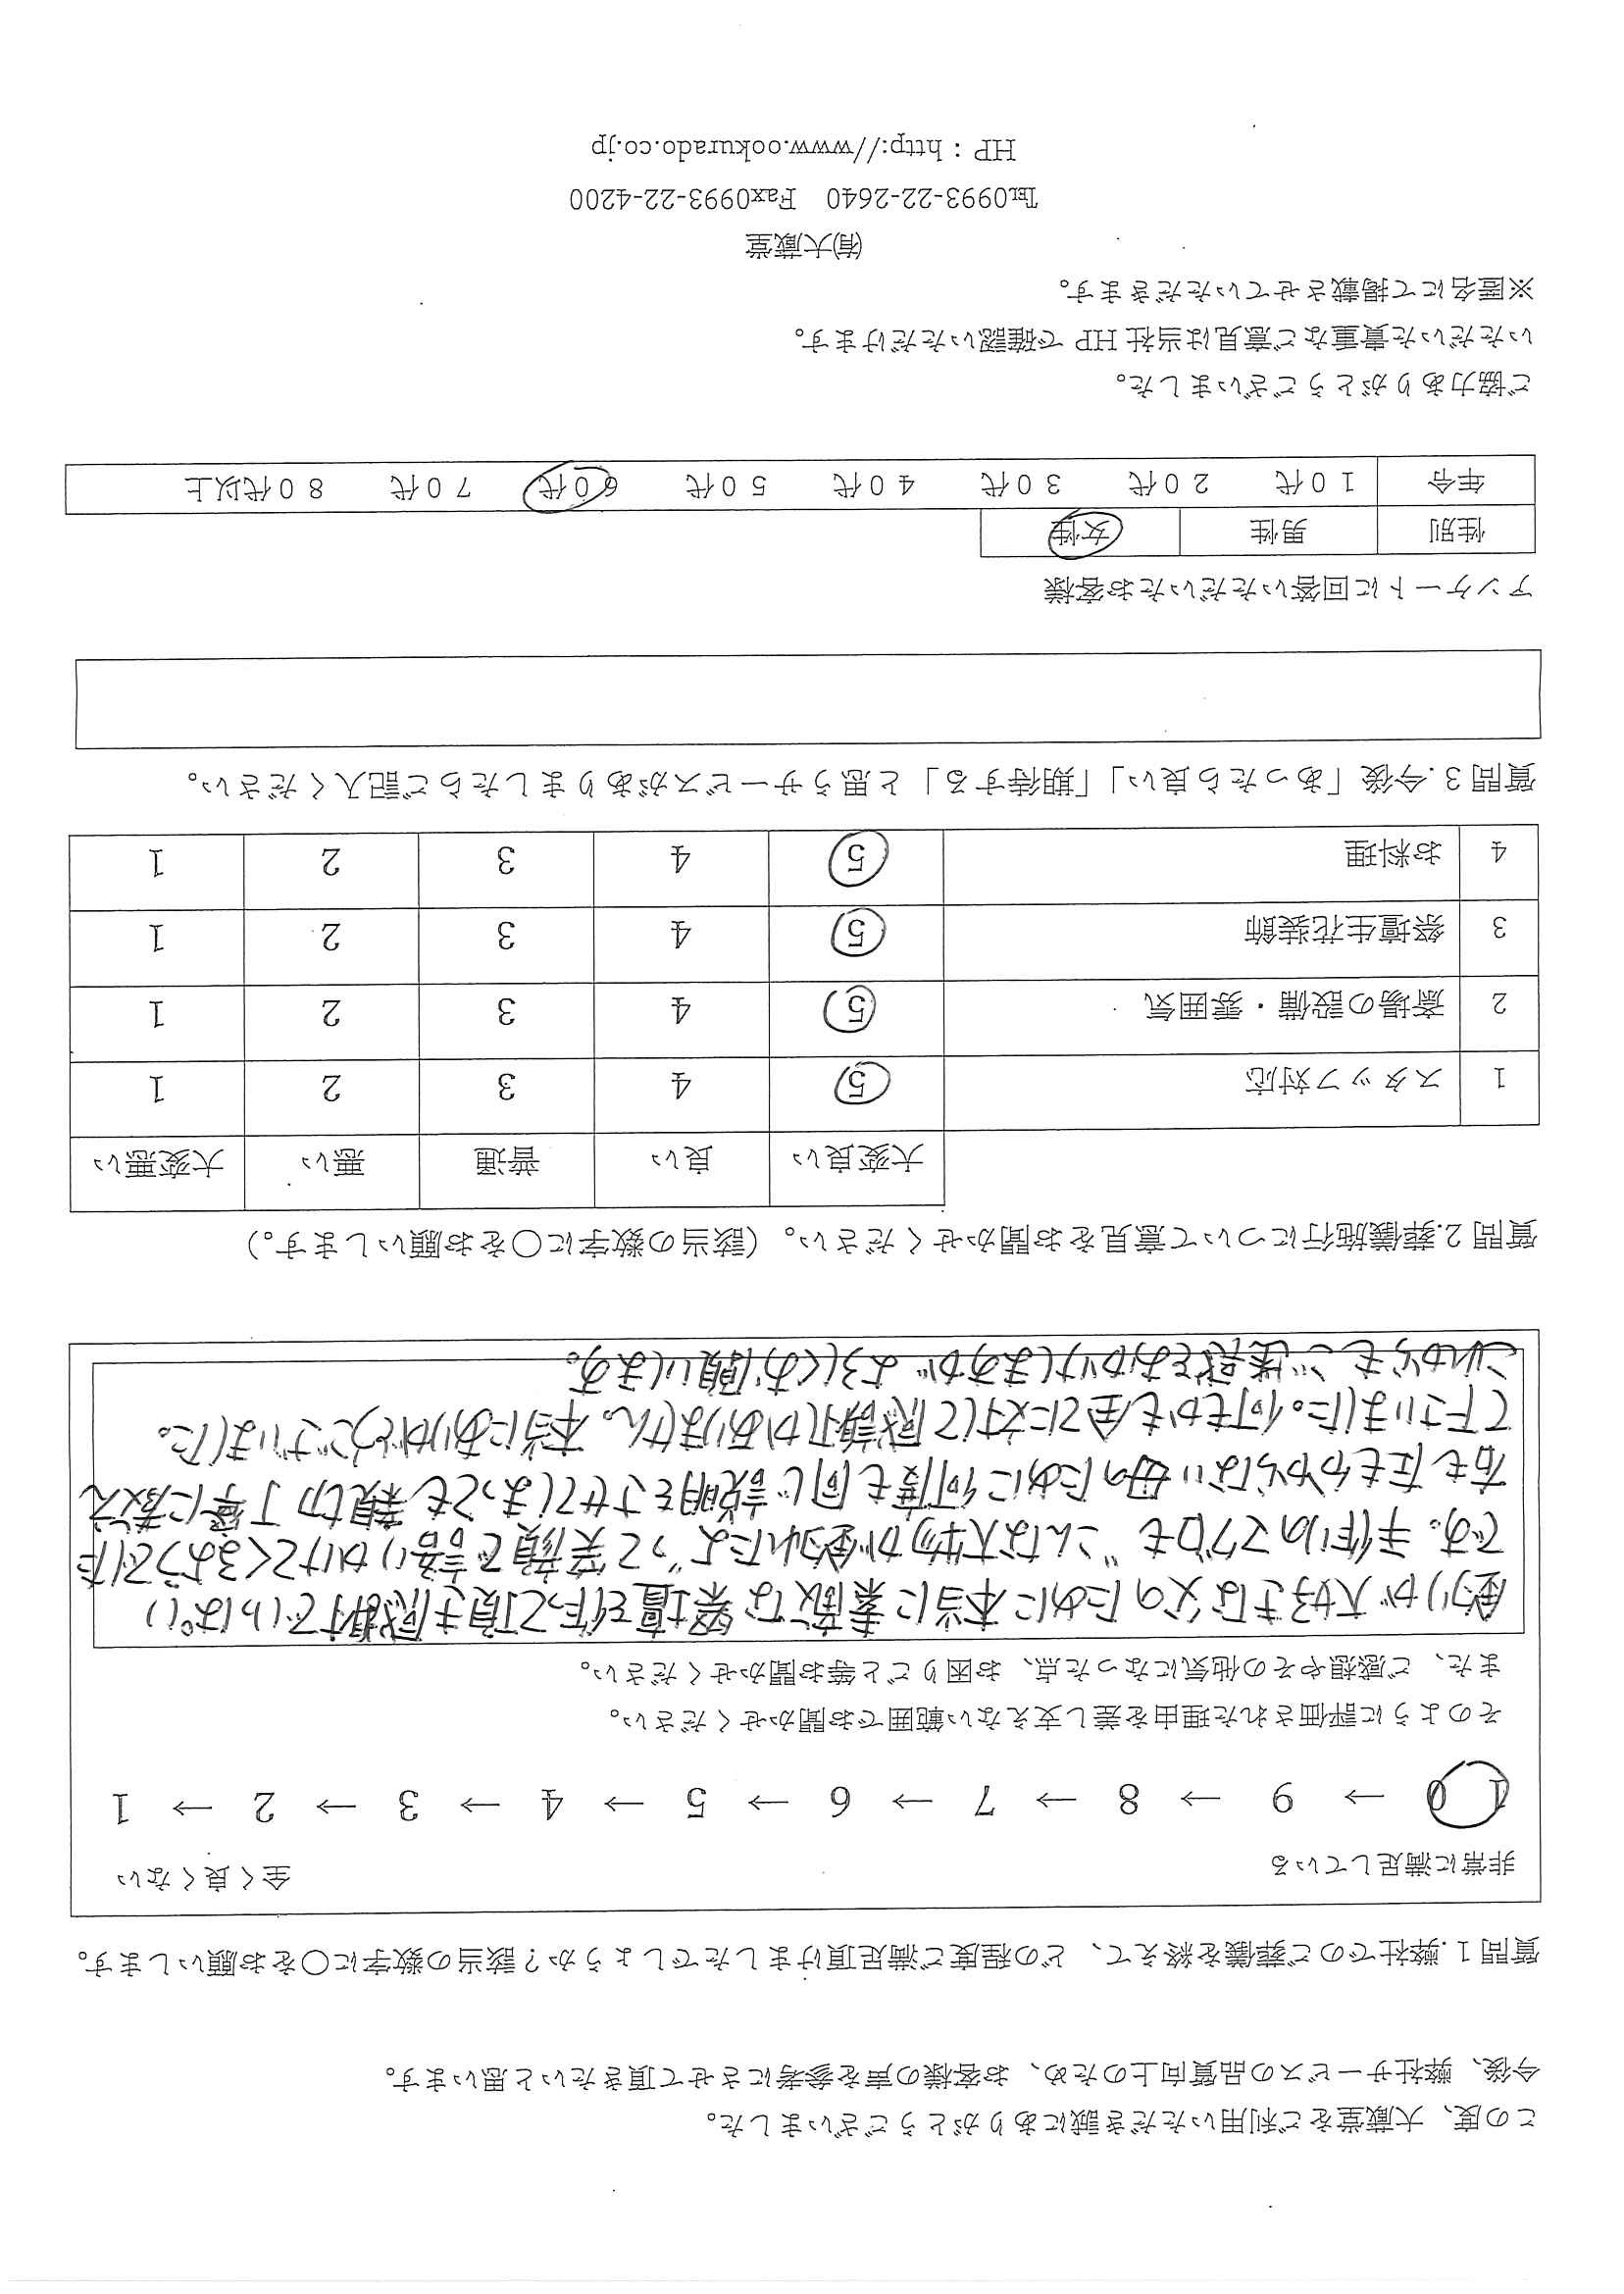 この度、大蔵堂をご利用いただき誠にありがとうございました。
今後、弊社サービスの品質向上のため、お客様の声を参考にさせて頂きたいと思います。
質問1.弊社でのご葬儀を終えて、どの程度ご満足頂けましたでしょうか?該当の数字に○をお願いします。
非常に満足している 全く良くない
10 → 9 → 8 → 7 → 6 → 5 → 4 → 3 → 2 → 1
そのように評価された理由を差し支えない範囲でお聞かせください。
また、ご感想やその他気になった点、お困りごと等お聞かせください。
釣りが大好きな父のために本当に素敵な祭壇を作って頂き感謝でいっぱい
です。手作りマグロも"こんな大物が釣れたよ"って笑顔で語りかけてくるようでした
右も左もわからない母のために何度も同じ説明をさせてしまっても親切丁寧に教え
て下さいました。何もかも全てに対して感謝しかありません。本当にありがとうございました。
これからもご迷惑をおかけしますがよろしくお願いします。
質問2.葬儀施行について意見をお聞かせください。(該当の数字に○をお願いします。)
大変良い 良い 普通 悪い 大変悪い
1 スタッフ対応 5 4 3 2 1
2 斎場の設備・雰囲気 5 4 3 2 1
3 祭壇生花装飾 5 4 3 2 1
4 お料理 5 4 3 2 1
質問3.今後「あったら良い」「期待する」と思うサービスがありましたらご記入ください。
アンケートに回答いただいたお客様
性別 男性 女性
年令 10代 20代 30代 40代 50代 60代 70代 80代以上
ご協力ありがとうございました。
いただいた貴重なご意見は当社HPで確認いただけます。
※匿名にて掲載させていただきます。
㈲大蔵堂
℡0993-22-2640 Fax0993-22-4200
HP:http://www.ookurado.co.jp